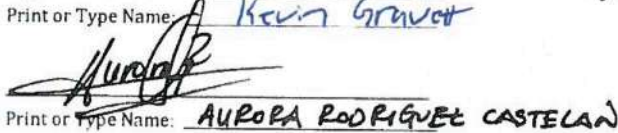 Print or Type Name: Kevin
Print or Type Name: AURORA RODRIGUEZ CASTELAN